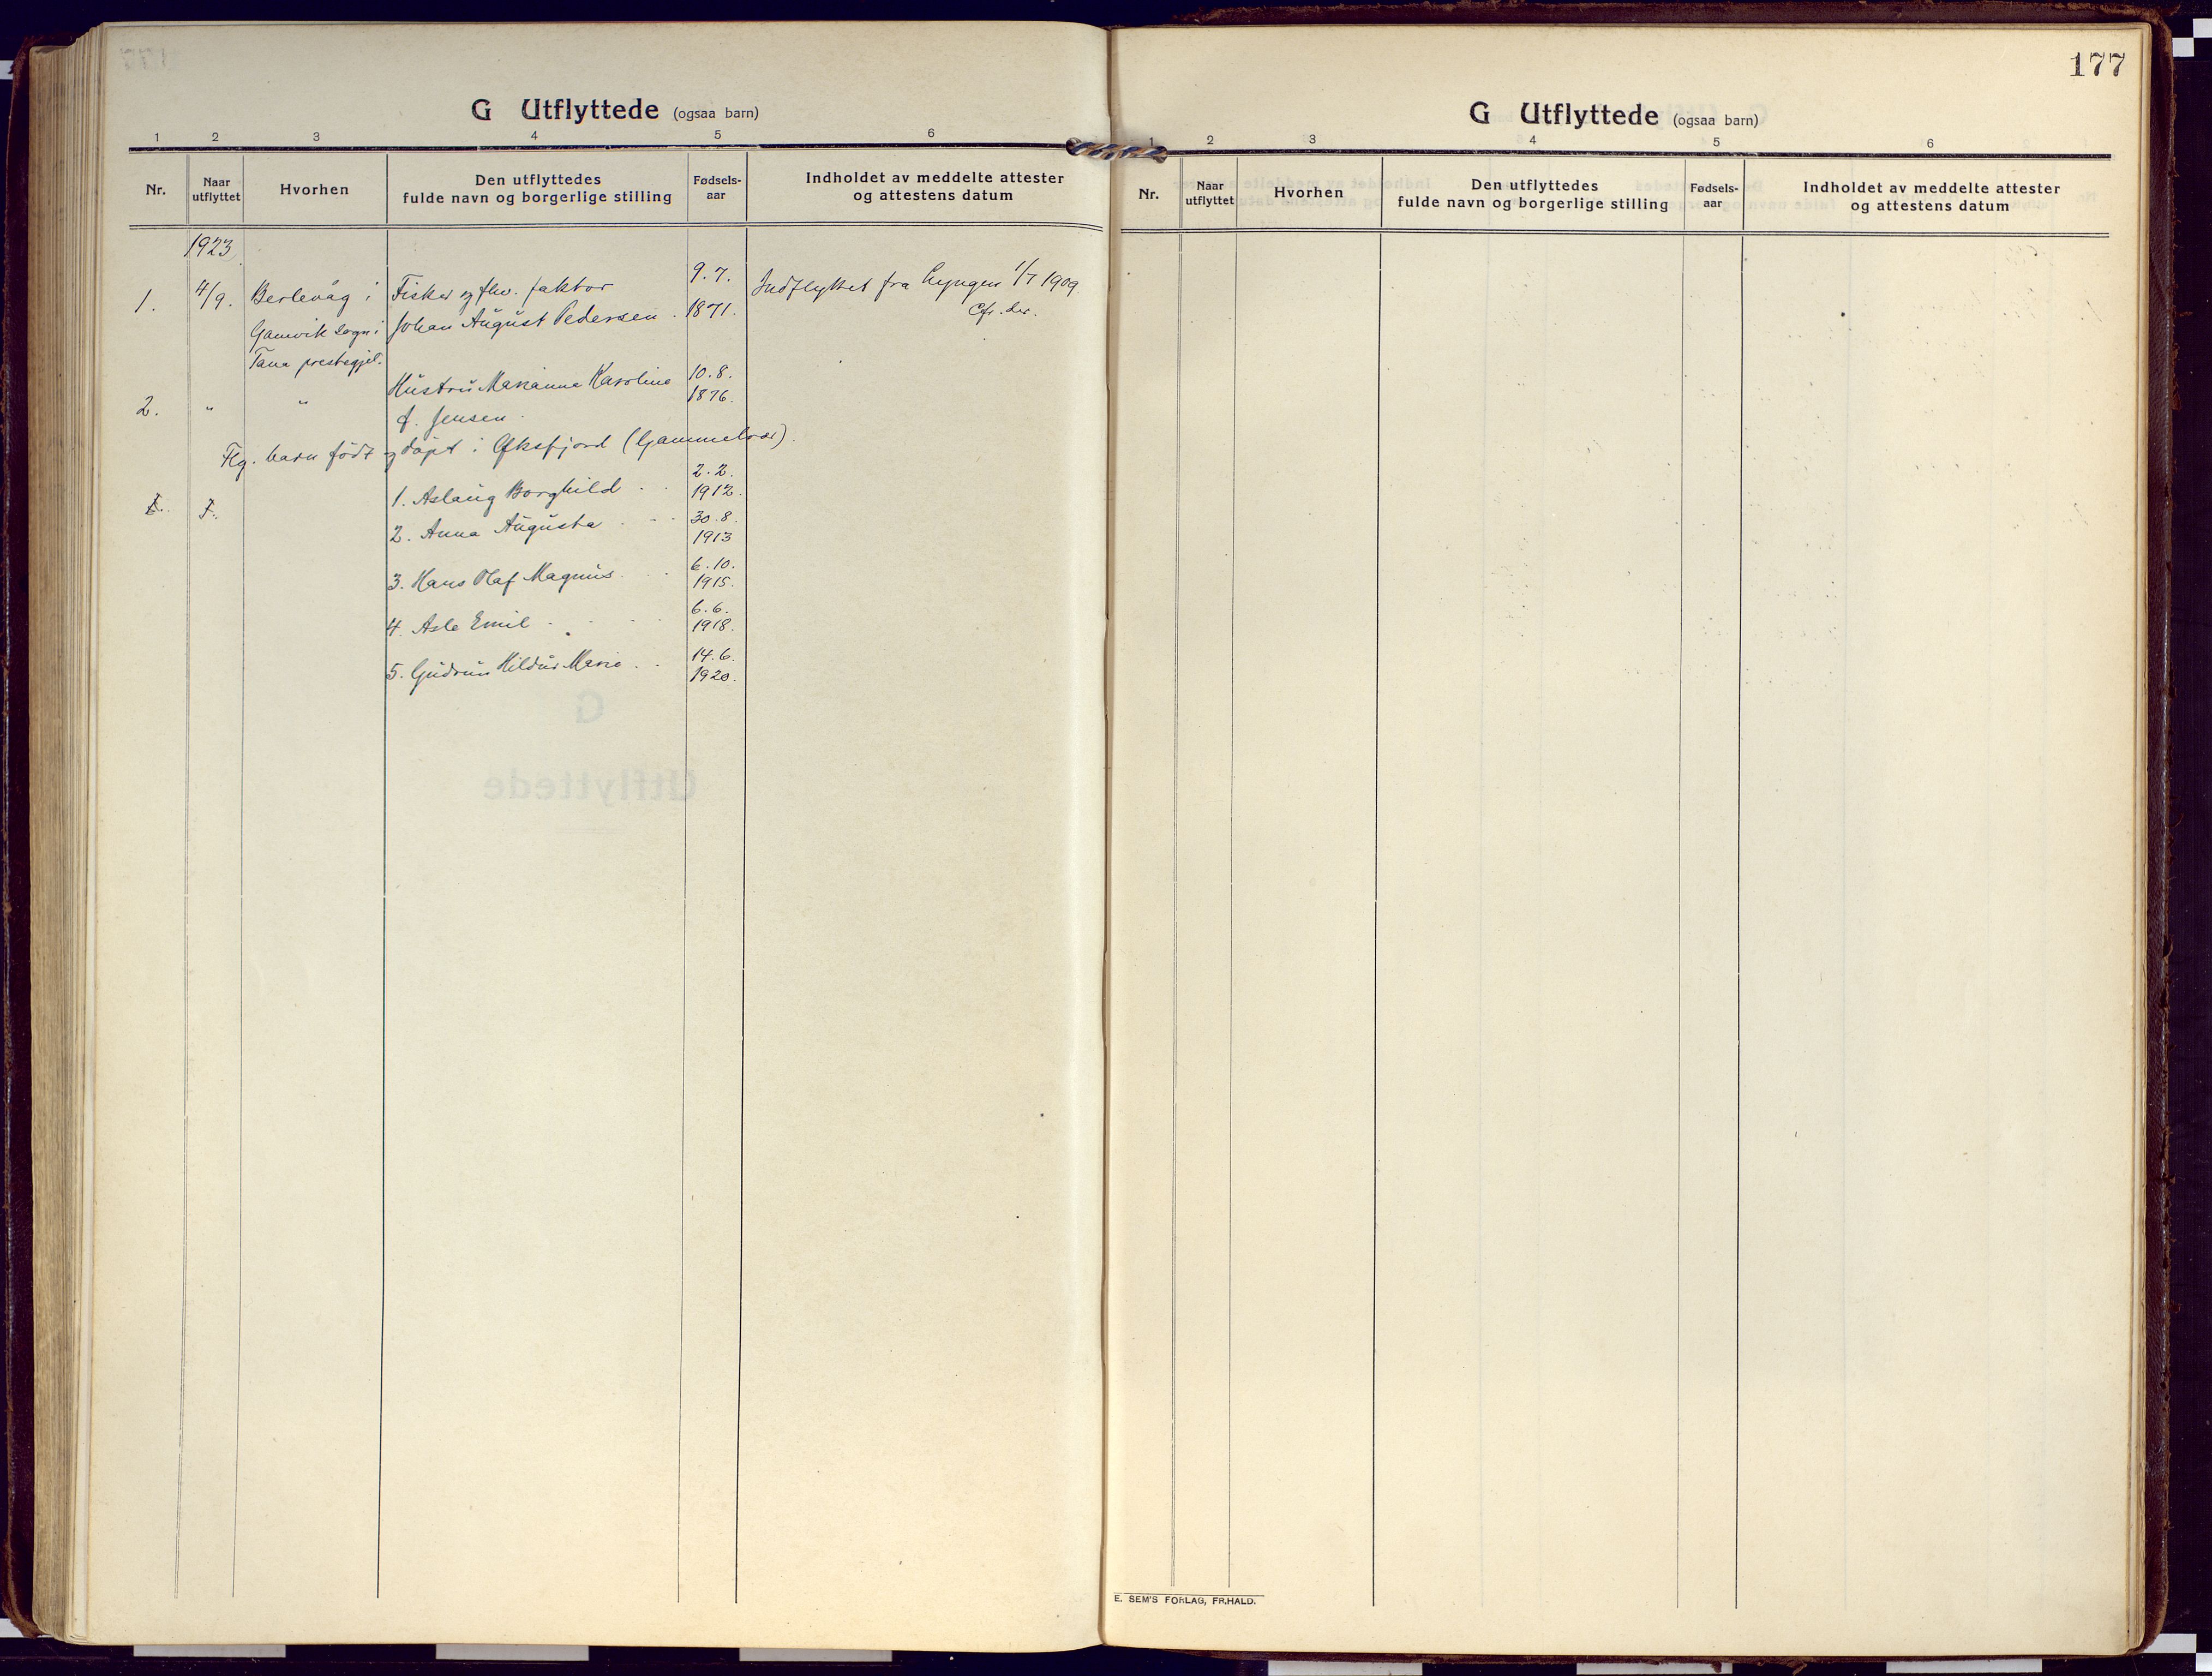 177
G Utflyttede (ogsaa barn)
1 2 3 4 5 6
Nr. Naar utflyttet Hvorhen Den utflyttedes fulde navn og borgerlige stilling Fødsels-aar Indholdet av meddelte attester og attestens datum
1923
1. 4/9. Berlevåg i Fisker og fhv. faktor 9.7. Indflyttet fra Lyngen 1/7 1909
Gamvik sogn i Johan August Pedersen. 1871. Cfr. der.
Tana prestegjel.
2. " " Hustru Marianna Karoline 10.8.
f. Jensen. 1876.
Flg. barn födt og döpt i Öksfjord (Gammelvær).
1. Aslaug Borghild . . 2.2. 1912.
2. Anna Augusta . . . 30.8. 1913
3. Hans Olaf Magnus . . 6.10. 1915.
4. Asle Emil . . . . 6.6. 1918.
5. Gudrun Hildur Marie . . 14.6. 1920.
G Utflyttede (ogsaa barn)
1 2 3 4 5 6
Nr. Naar utflyttet Hvorhen Den utflyttedes fulde navn og borgerlige stilling Fødsels-aar Indholdet av meddelte attester og attestens datum
E. SEM'S FORLAG, FR.HALD.